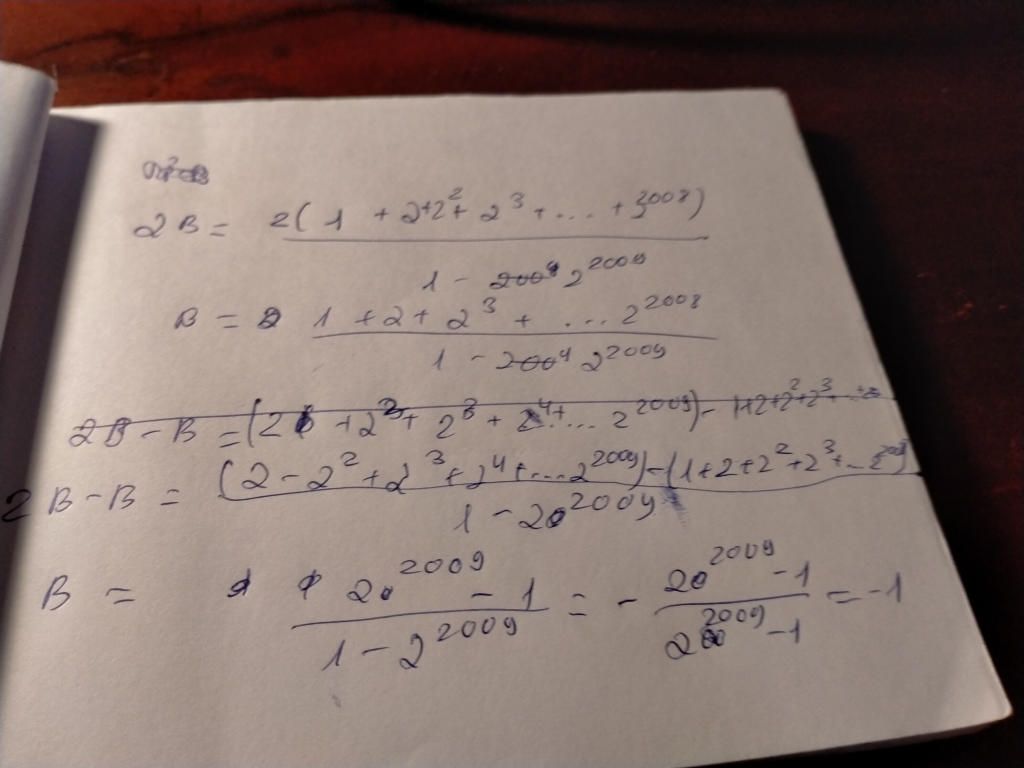 2B = 2(1 + 2+2²+ 2³ + ... + 3²⁰⁰⁸)
1 - 2²⁰⁰⁹
B = 1 + 2 + 2³ + ... 2²⁰⁰⁸
1 - 2²⁰⁰⁹
2B - B = (2 + 2² + 2³ + 2⁴+ ... 2²⁰⁰⁹) - 1+2+2²+2³+...
2B - B = (2 - 2² + 2³ + 2⁴ + ... 2²⁰⁰⁹) - (1+2+2²+2³+...2²⁰⁰⁹)
1 - 2²⁰⁰⁹
B = 2²⁰⁰⁹ - 1 = - 2²⁰⁰⁹ - 1 = -1
1 - 2²⁰⁰⁹ 2²⁰⁰⁹ - 1